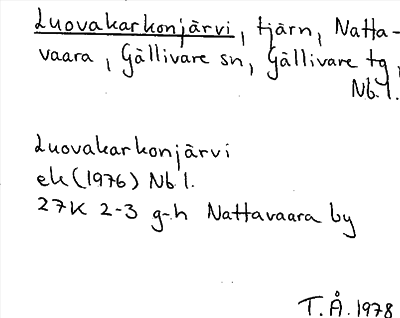 Luovakarkonjärvi, tjärn, Natta-
vaara, Gällivare sn, Gällivare tg,
Nb.l.
Luovakarkonjärvi
ek (1976) Nb l.
27K 2-3 g-h Nattavaara by
T.Å. 1978